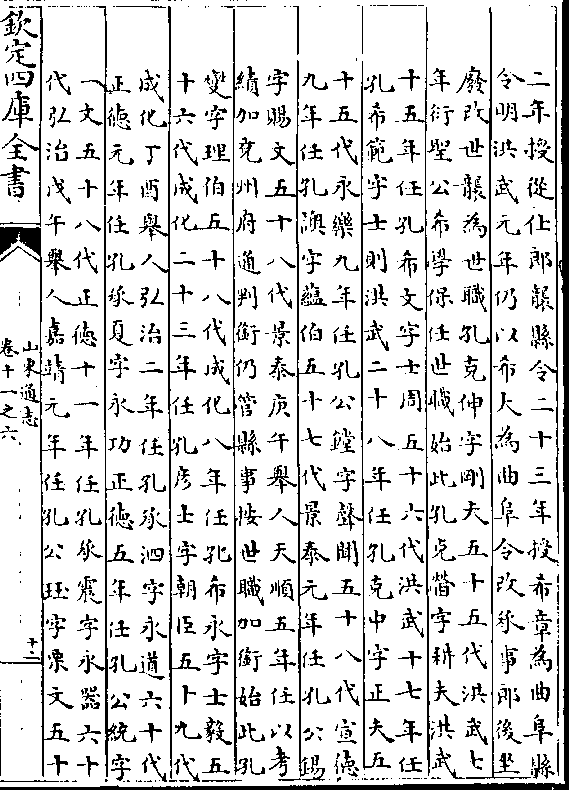 二年授從仕郎襲縣令二十三年授希章為曲阜縣
令明洪武元年仍以希大為曲阜令改承事郎後坐
廢改世襲為世職孔克伸字剛夫五十五代洪武七
年衍聖公希學保任世職始此孔克字耕夫洪武
十五年任孔希文字士周五十六代洪武十七年任
孔希範字士則洪武二十八年任孔克中字正夫五
十五代永樂九年任孔公鏜字聲聞五十八代宣德
九年任孔字蘊伯五十七代景泰元年任孔公錫
字賜文五十八代景泰庚午舉人天順五年任以考
績加兖州府通判銜仍管縣事按世職加銜始此孔
字理伯五十八代成化八年任孔希永字士毅五
十六代成化二十三年任孔彦士字朝臣五十九代
成化丁酉舉人弘治二年任孔承泗字永道六十代
正德元年任孔承夏字永功正德五年任孔公統字
一文五十八代正德十一年任孔承震字永器六十
代弘治戊午舉人嘉靖元年任孔公珏字栗文五十
欽定四庫全書
山東通志
卷十一之六
十二